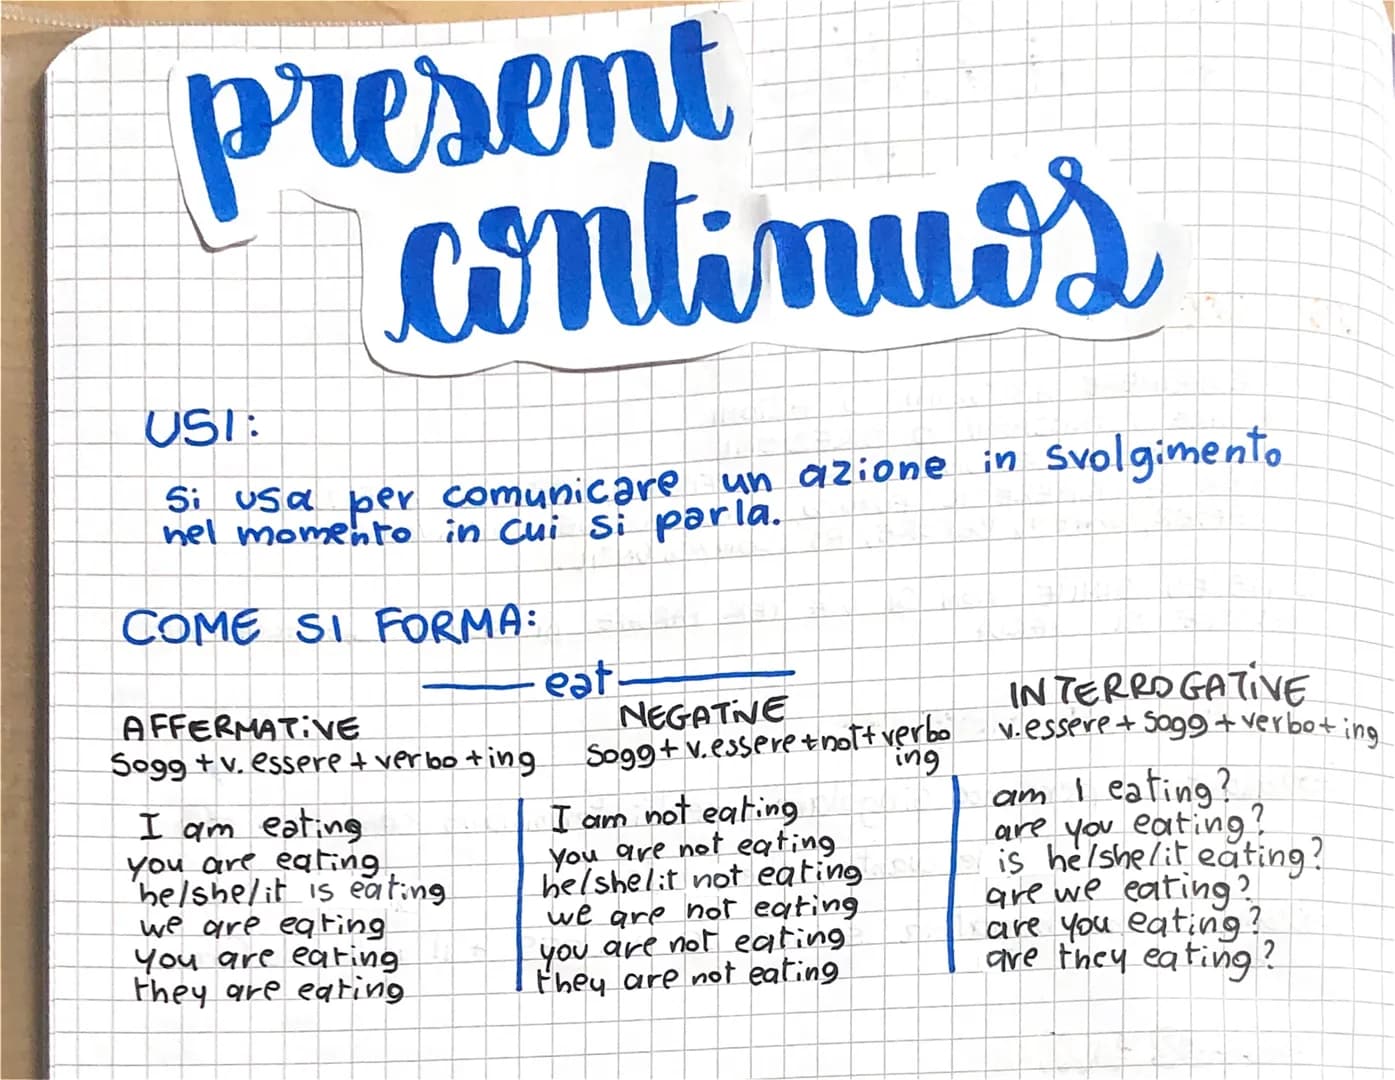 present
continuos
USI:
Si usa per comunicare un azione in svolgimento
nel momento in cui si parla.
COME SI FORMA:
eat
AFFERMATIVE
Sogg + v. essere + verbo + ing
I am eating
you are eating
he/she/it is eating
we are eating
you are eating
they are eating
NEGATIVE
Sogg + v. essere + not + verbo
ing
I am not eating
you are not eating
he/she/it not eating
we are not eating
you are not eating
they are not eating
INTERROGATIVE
v. essere + Sogg + verbo + ing
am I eating?
are you eating?
is he/she/it eating?
are we eating?
are you eating?
are they eating?